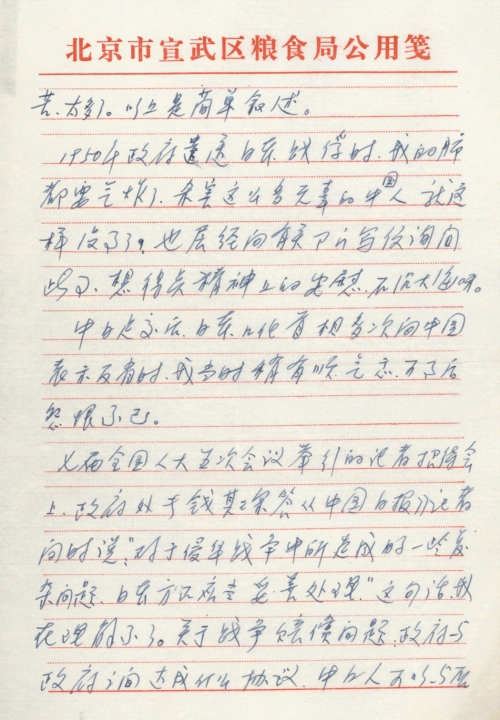 北京市宣武区粮食局公用笺
苦、太多了。以上是简单叙述。
1950年政府遣送日本战俘时,我的肺
都要气炸了,杀害这么多无辜的中国人就这
样没事了,也曾经向有关部门写信询问
此事,想得点精神上的安慰,石沉大海。
中日建交后,日本几代首相多次向中国
表示反省时,我当时稍有顺气之
怨恨不已。
七届全国人大五次会议举行的记者招待会
上,政府外长钱其琛答《中国日报》记者
问时说,"对于侵华战争中所造成的一些复
杂问题,日本方面应当妥善处理。"这句话,我
在理解不了。关于战争赔偿问题,政府与
政府之间达成什么协议,中日人可以